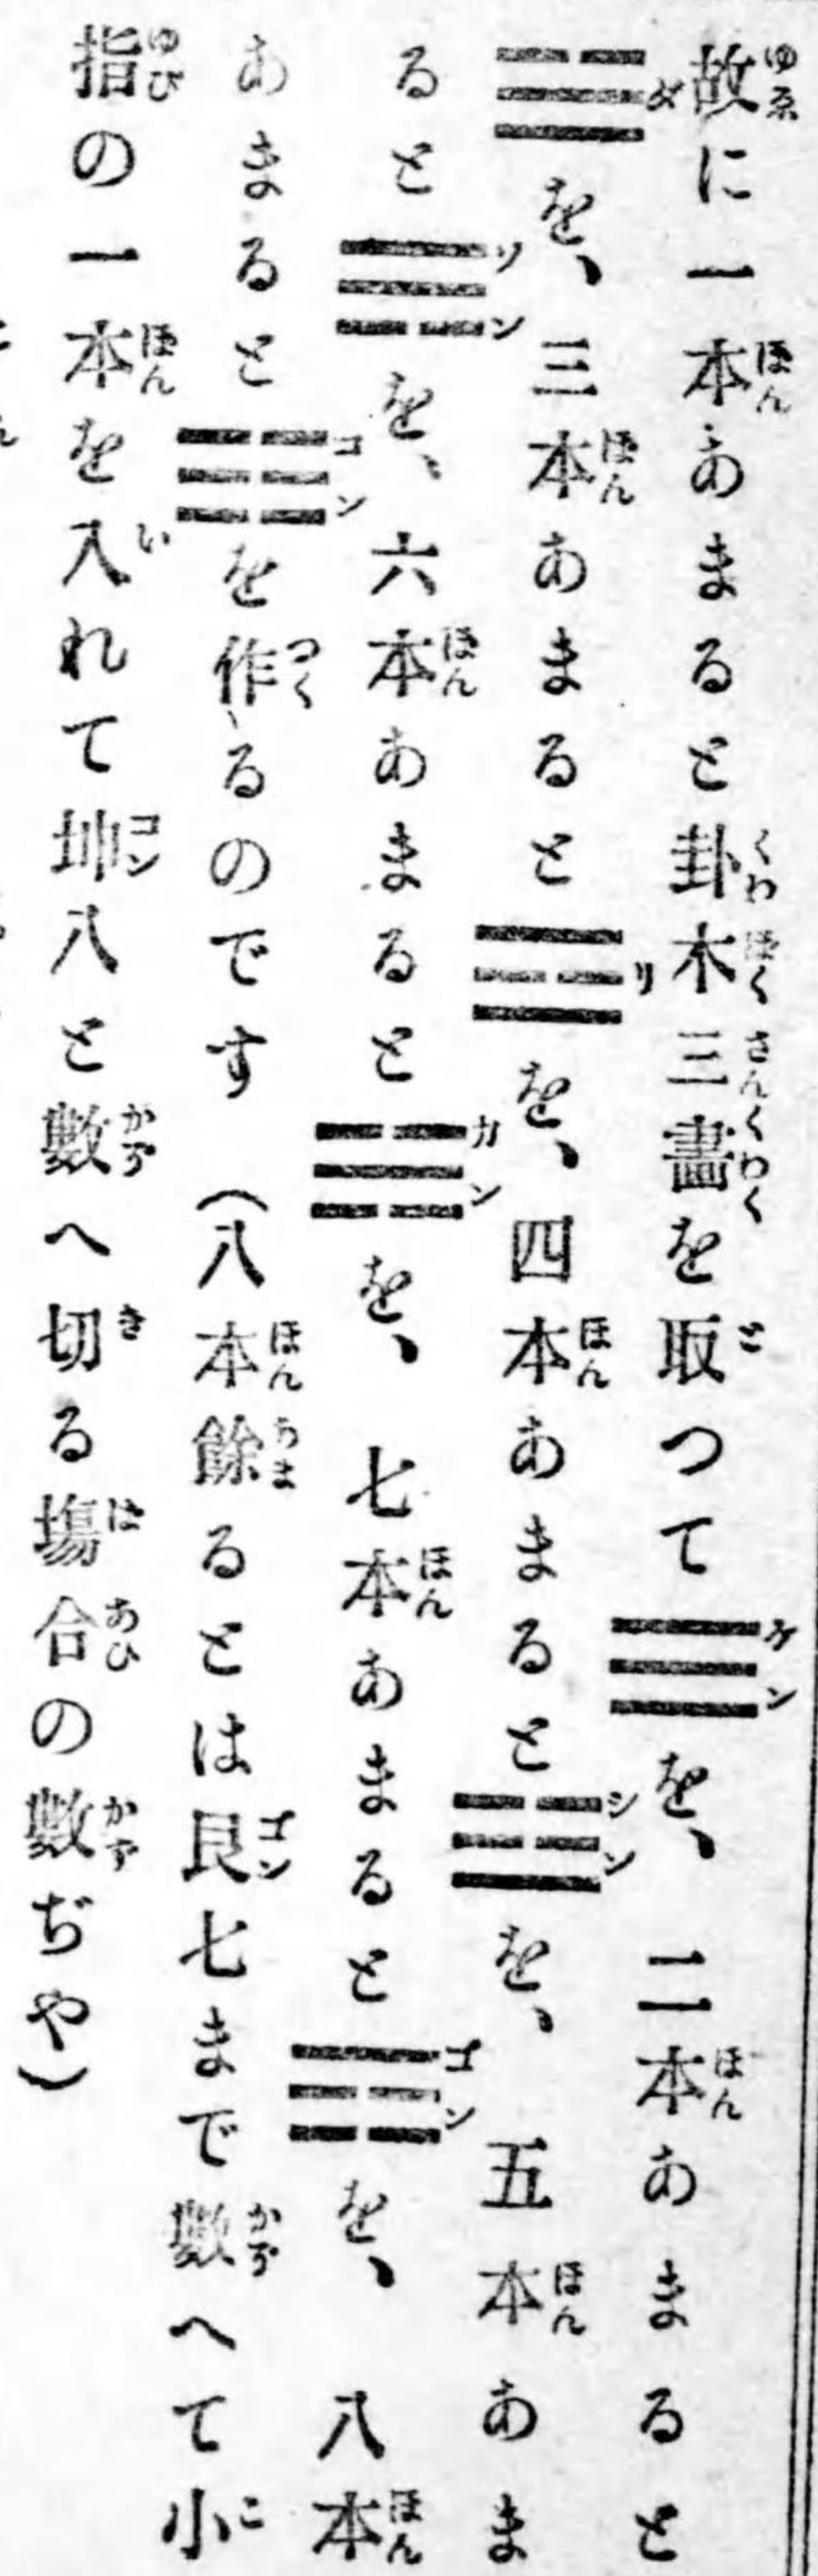 故に一本あまると卦木三畵を取つて☰を、二本あまると
☱を、三本あまると☲を、四本あまると☳を、五本あま
ると☴を、六本あまると☵を、七本あまると☶を、八本
あまると☷を作るのです（八本餘るとは艮七まで數へて小
指の一本を入れて坤八と數へ切る塲合の數ぢや）